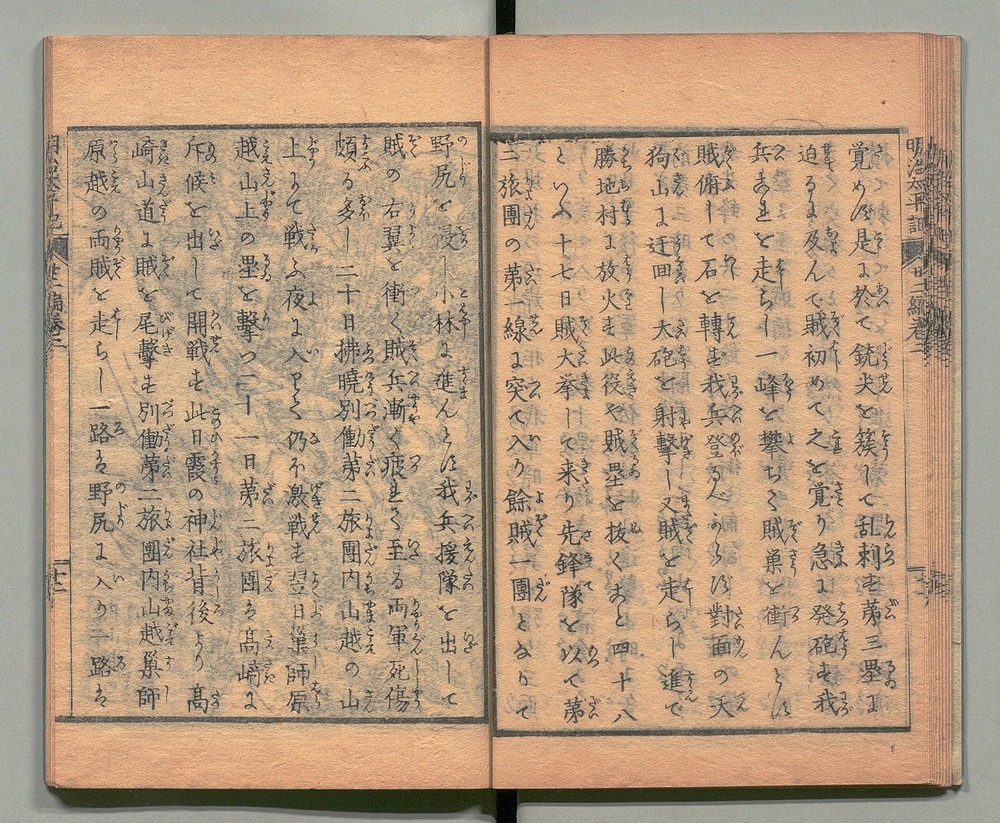 明治太平記 廿二編巻二
覚めず是に於て銃尖を簇して乱刺す第三塁に
迫るに及んで賊初めて之を覚り急に発砲す我
兵之を走らし一峰を攀ぢて賊巣を衝んとす
賊俯して石を轉ず我兵登るべからず對面の天
狗山に迂回し大砲を射撃し又賊を走らし進で
勝地村に放火す此役や賊塁を抜くこと四十八
といふ十七日賊大挙して来り先鋒隊を以て第
二旅團の第一線に突て入り餘賊一團となりて
野尻を侵し小林に進んとす我兵援隊を出して
賊の右翼を衝く賊兵漸く疲れて至る両軍死傷
頗る多し二十日拂暁別働第二旅團内山越の山
上にて戦ふ夜に入りて仍ほ激戦す翌日巣師原
越山上の塁を撃つ二十一日第二旅團は髙﨑に
斥候を出して開戦す此日霞の神社背後より髙
崎山道に賊を尾撃す別働第二旅團内山越巣師
原越の両賊を走らし一路は野尻に入り一路は
明治太平記 廿二編巻二